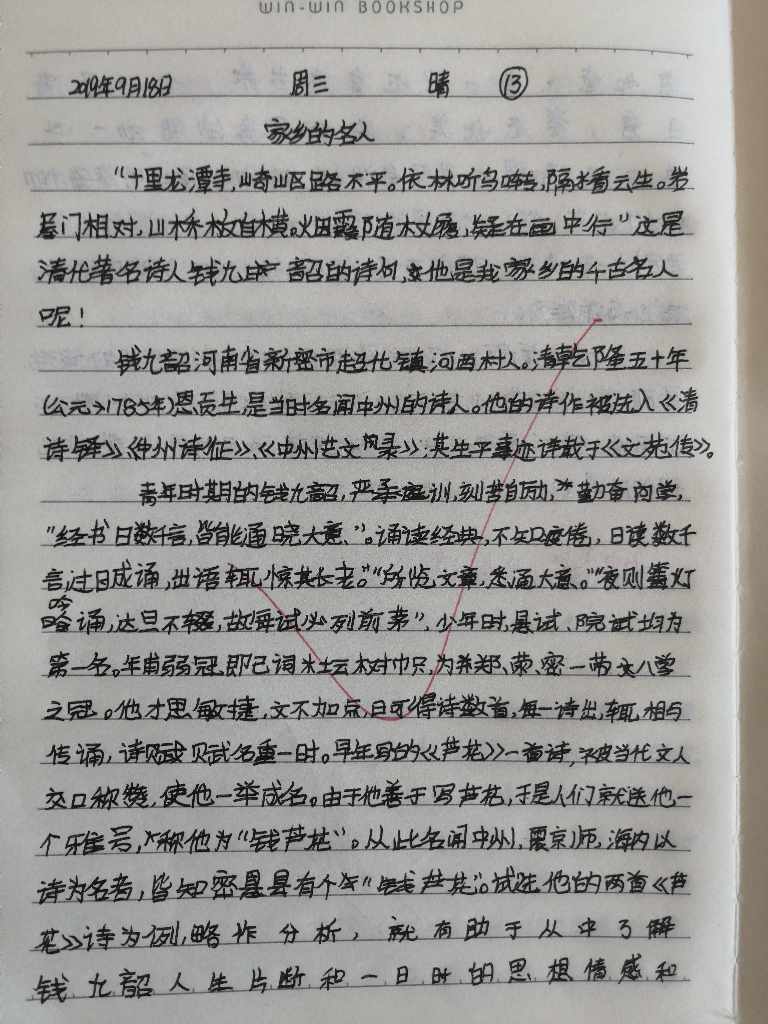 WIN-WIN BOOKSHOP
2019年9月18日 周三 晴 ⑬
家乡的名人
“十里龙潭寺,崎岖路不平。依林听鸟啭,隔水看云生。岩
门相对,山桥松自横。烟霞随杖履,疑在画中行”这是
清代著名诗人钱九韶的诗句,他是我家乡的千古名人
呢!
钱九韶河南省新密市超化镇河西村人。清乾隆五十年
(公元1785年)恩贡生,是当时名闻中州的诗人。他的诗作被选入《清
诗铎》《中州诗征》、《中州艺文风录》;其生平事迹详载于《文苑传》。
青年时期的钱九韶,严承庭训,刻苦自励,勤奋向学,
“经书日数千言,皆能通晓大意、”。诵读经典,不知疲倦,日读数千
言,过目成诵,出语辄惊其长老。”“所览文章,悉通大意。”“夜则篝灯
吟诵,达旦不辍,故每试必列前茅”,少年时,县试、院试均为
第一名。年甫弱冠,即已词坛树帜,为郑、荥、密一带文人学
之冠。他才思敏捷,文不加点,日可得诗数首,每一诗出,辄相与
传诵,诗赋名重一时。早年写的《芦花》一首诗,被当代文人
交口称赞,使他一举成名。由于他善于写芦花,于是人们就送他一
个雅号,称他为“钱芦花”。从此名闻中州,震京师,海内以
诗为名者,皆知密县有个“钱芦花”。试选他的两首《芦
花》诗为例,略作分析,就有助于从中了解
钱九韶人生片断和一日时的思想情感和